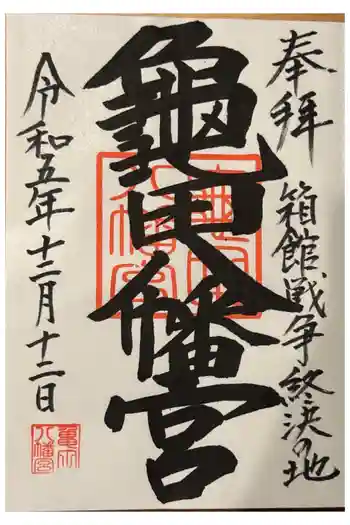 奉拝
箱館戦争終決の地
龜田八幡宮
令和五年十二月十二日
亀田八幡宮
亀田八幡宮